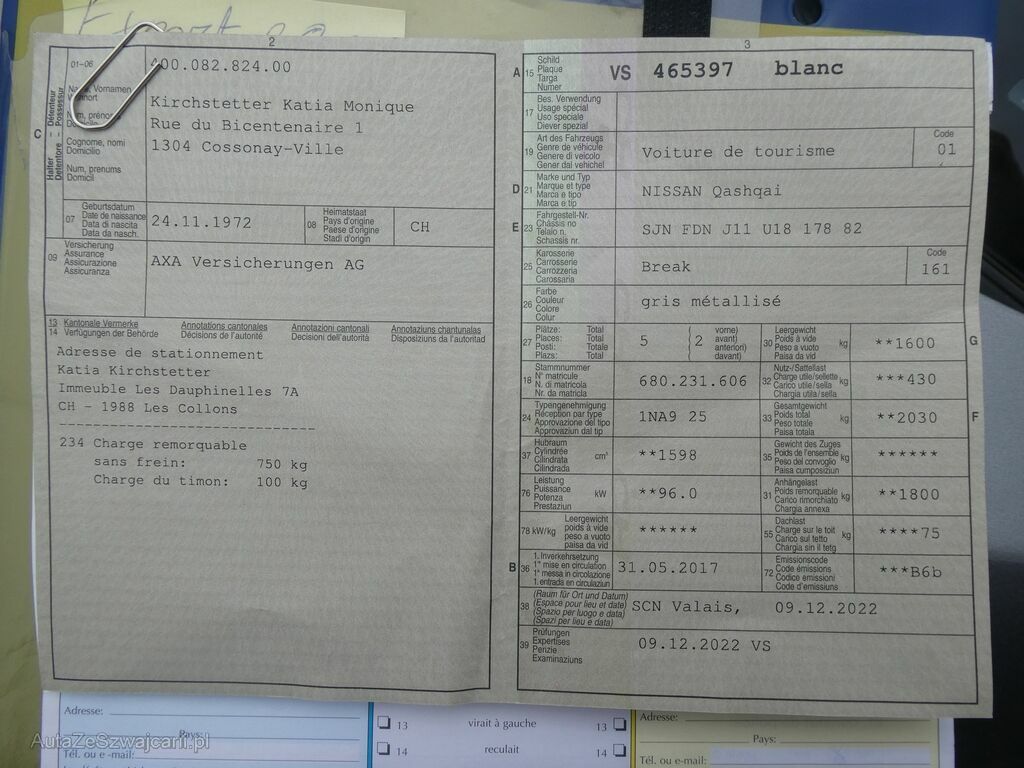 2
01-06
400.082.824.00
Kirchstetter Katia Monique
Rue du Bicentenaire 1
1304 Cossonay-Ville
C
Détenteur
Possessur
Halter
Detentore
Name, Vornamen
Wohnort
Nom, prénoms
Domicile
Cognome, nomi
Domicilio
Num, prenums
Domicil
07
Geburtsdatum
Date de naissance
Data di nascita
Data da nasch.
24.11.1972
08
Heimatstaat
Pays d'origine
Paese d'origine
Stadi d'origin
CH
09
Versicherung
Assurance
Assicurazione
Assicuranza
AXA Versicherungen AG
13 Kantonale Vermerke Annotations cantonales Annotazioni cantonali Annotaziuns chantunalas
14 Verfügungen der Behörde Décisions de l'autorité Decisioni dell'autorità Disposiziuns da l'autoritad
Adresse de stationnement
Katia Kirchstetter
Immeuble Les Dauphinelles 7A
CH - 1988 Les Collons
234 Charge remorquable
sans frein: 750 kg
Charge du timon: 100 kg
3
A 15
Schild
Plaque
Targa
Numer
VS 465397 blanc
17
Bes. Verwendung
Usage spécial
Uso speciale
Diever spezial
19
Art des Fahrzeugs
Genre de véhicule
Genere di veicolo
Gener dal vehichel
Voiture de tourisme
Code
01
D 21
Marke und Typ
Marque et type
Marca e tipo
Marca e tip
NISSAN Qashqai
E 23
Fahrgestell-Nr.
Châssis no
Telaio n.
Schassis nr.
SJN FDN J11 U18 178 82
25
Karosserie
Carrosserie
Carrozzeria
Carossaria
Break
Code
161
26
Farbe
Couleur
Colore
Colur
gris métallisé
27
Plätze: Total
Places: Total
Posti: Totale
Plazs: Total
5 ( 2
vorne)
avant)
anteriori)
davant)
30
Leergewicht
Poids à vide
Peso a vuoto
Paisa da vid
kg
**1600
G
18
Stammnummer
N° matricule
N. di matricola
Nr. da matricla
680.231.606
32
Nutz-/Sattellast
Charge utile/sellette
Carico utile/sella
Chargia utila/sella
kg
***430
24
Typengenehmigung
Réception par type
Approvazione del tipo
Approvaziun dal tip
1NA9 25
33
Gesamtgewicht
Poids total
Peso totale
Paisa totala
kg
**2030
F
37
Hubraum
Cylindrée
Cilindrata
Cilindrada
cm³
**1598
35
Gewicht des Zuges
Poids de l'ensemble
Peso del convoglio
Paisa cumposiziun
kg
******
76
Leistung
Puissance
Potenza
Prestaziun
kW
**96.0
31
Anhängelast
Poids remorquable
Carico rimorchiato
Chargia annexa
kg
**1800
78 kW/kg
Leergewicht
poids à vide
peso a vuoto
paisa da vid
******
55
Dachlast
Charge sur le toit
Carico sul tetto
Chargia sin il tetg
kg
****75
B 36
1. Inverkehrsetzung
1re mise en circulation
1a messa in circolazione
1. entrada en circulaziun
31.05.2017
72
Emissionscode
Code émissions
Codice emissioni
Code d'emissiuns
***B6b
38
(Raum für Ort und Datum)
(Espace pour lieu et date)
(Spazio per luogo e data)
(Spazi per lieu e data)
SCN Valais, 09.12.2022
39
Prüfungen
Expertises
Perizie
Examinaziuns
09.12.2022 VS
Adresse:
Pays:
Tél. ou e-mail:
13 virait à gauche 13
14 reculait 14
Adresse:
Pays:
Tél. ou e-mail:
AutaZeSzwajcarii.pl